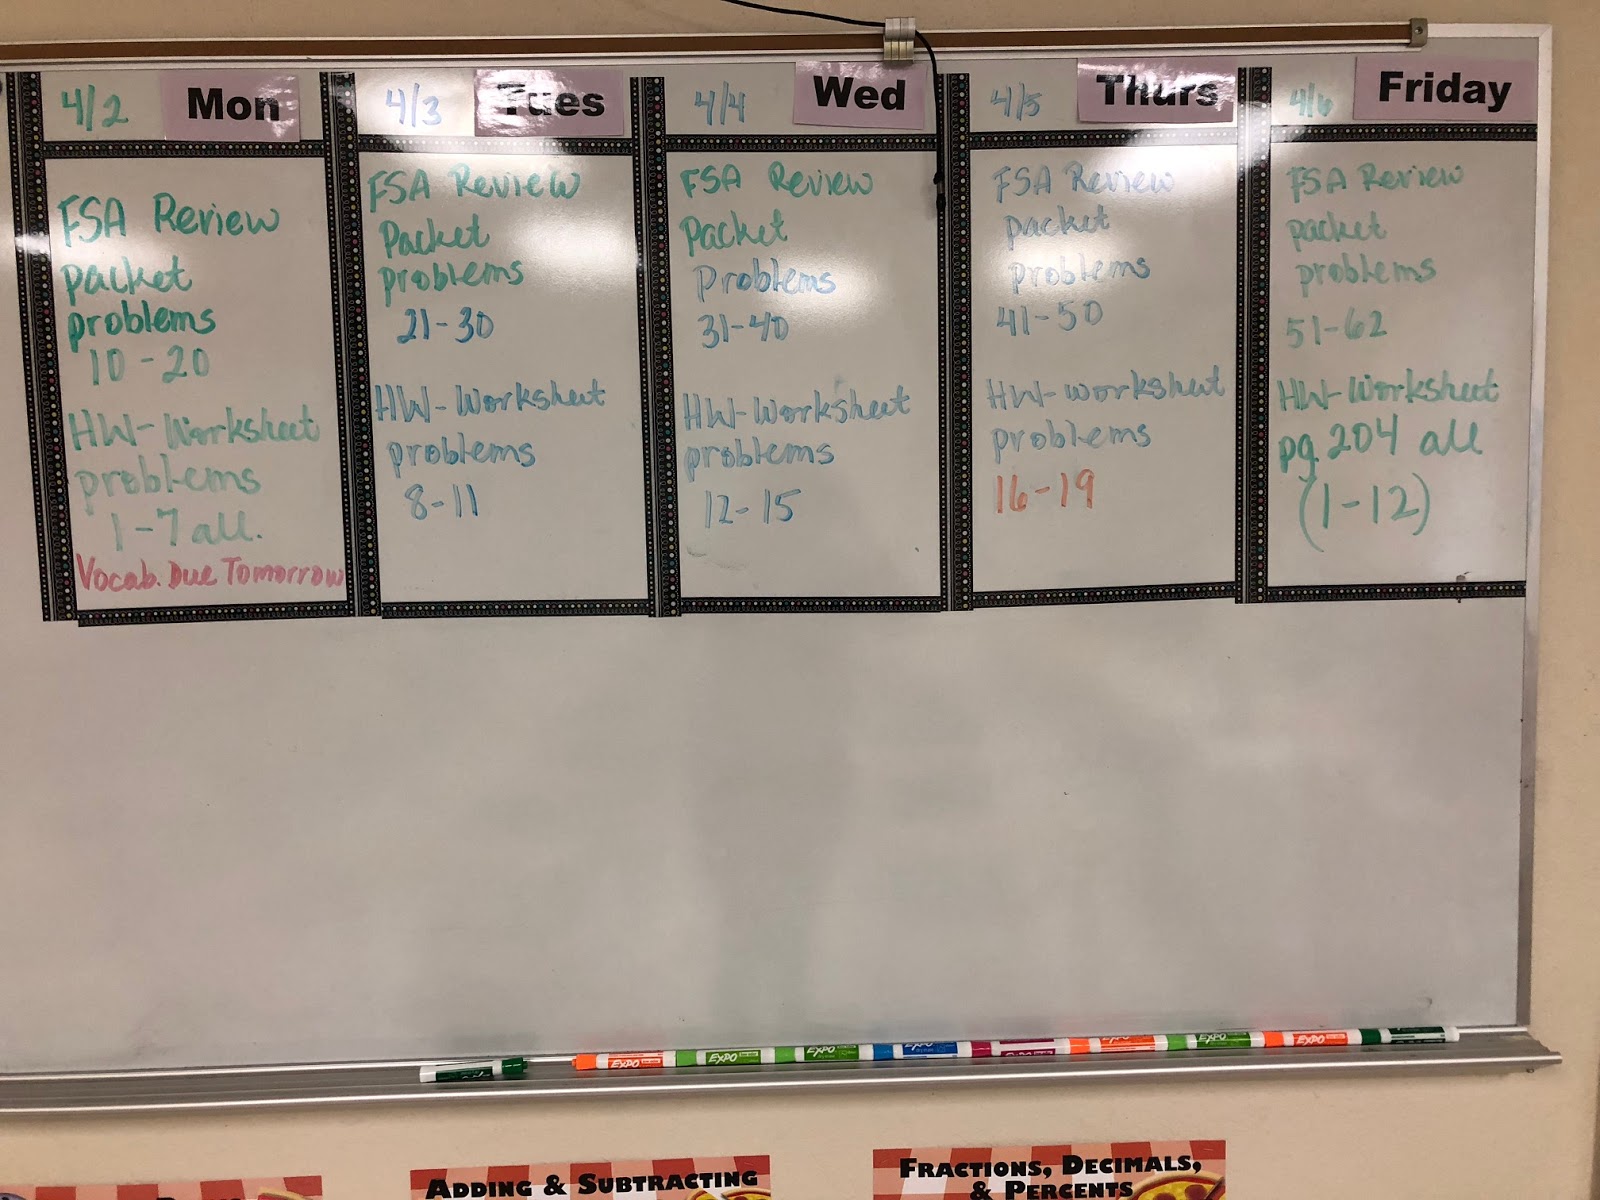 4/2 Mon
FSA Review
packet
problems
10-20
HW-Worksheet
problems
1-7 all.
Vocab. Due Tomorrow
4/3 Tues
FSA Review
Packet
problems
21-30
HW-Worksheet
problems
8-11
4/4 Wed
FSA Review
Packet
Problems
31-40
HW-Worksheet
problems
12-15
4/5 Thurs
FSA Review
packet
problems
41-50
HW-worksheet
problems
16-19
4/6 Friday
FSA Review
packet
problems
51-62
HW-Worksheet
pg 204 all
(1-12)
EXPO
EXPO
EXPO
EXPO
EXPO
EXPO
ADDING & SUBTRACTING
FRACTIONS, DECIMALS,
& PERCENTS